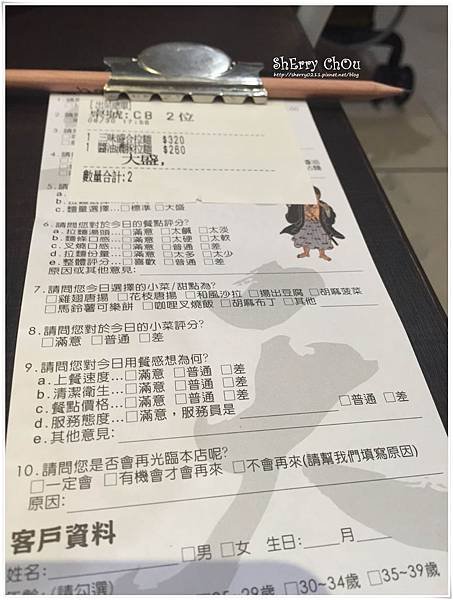 ShErry ChOu
http://sherry0211.pixnet.net/blog
桌號:CB 2位
1 三味盛合拉麵 $320
1 醬油 拉麵 $260
大盛,
數量合計:2
c.麵量選擇…□標準 □大盛
6.請問您對於今日的餐點評分?
a.拉麵湯頭…□滿意 □太鹹 □太淡
b.麵條口感…□滿意 □太硬 □太軟
c.叉燒口感…□滿意 □普通 □差
d.拉麵份量…□滿意 □太多 □太少
e.整體評分…□喜歡 □普通 □差
原因或其他意見:
7.請問您今日選擇的小菜/甜點為?
□雞翅唐揚 □花枝唐揚 □和風沙拉 □揚出豆腐 □胡麻菠菜
□馬鈴薯可樂餅 □咖哩叉燒飯 □胡麻布丁 □其他
8.請問您對於今日的小菜評分?
□滿意 □普通 □差
9.請問您對今日用餐感想為何?
a.上餐速度…□滿意 □普通 □差
b.清潔衛生…□滿意 □普通 □差
c.餐點價格…□滿意 □普通 □差
d.服務態度…□滿意,服務員是 □普通 □差
e.其他意見:
10.請問您是否會再光臨本店呢?
□一定會 □有機會才會再來 □不會再來(請幫我們填寫原因)
原因:
客戶資料
姓名: □男 □女 生日: 月
年齡:(請勾選) 25~29歲 □30~34歲 □35~39歲